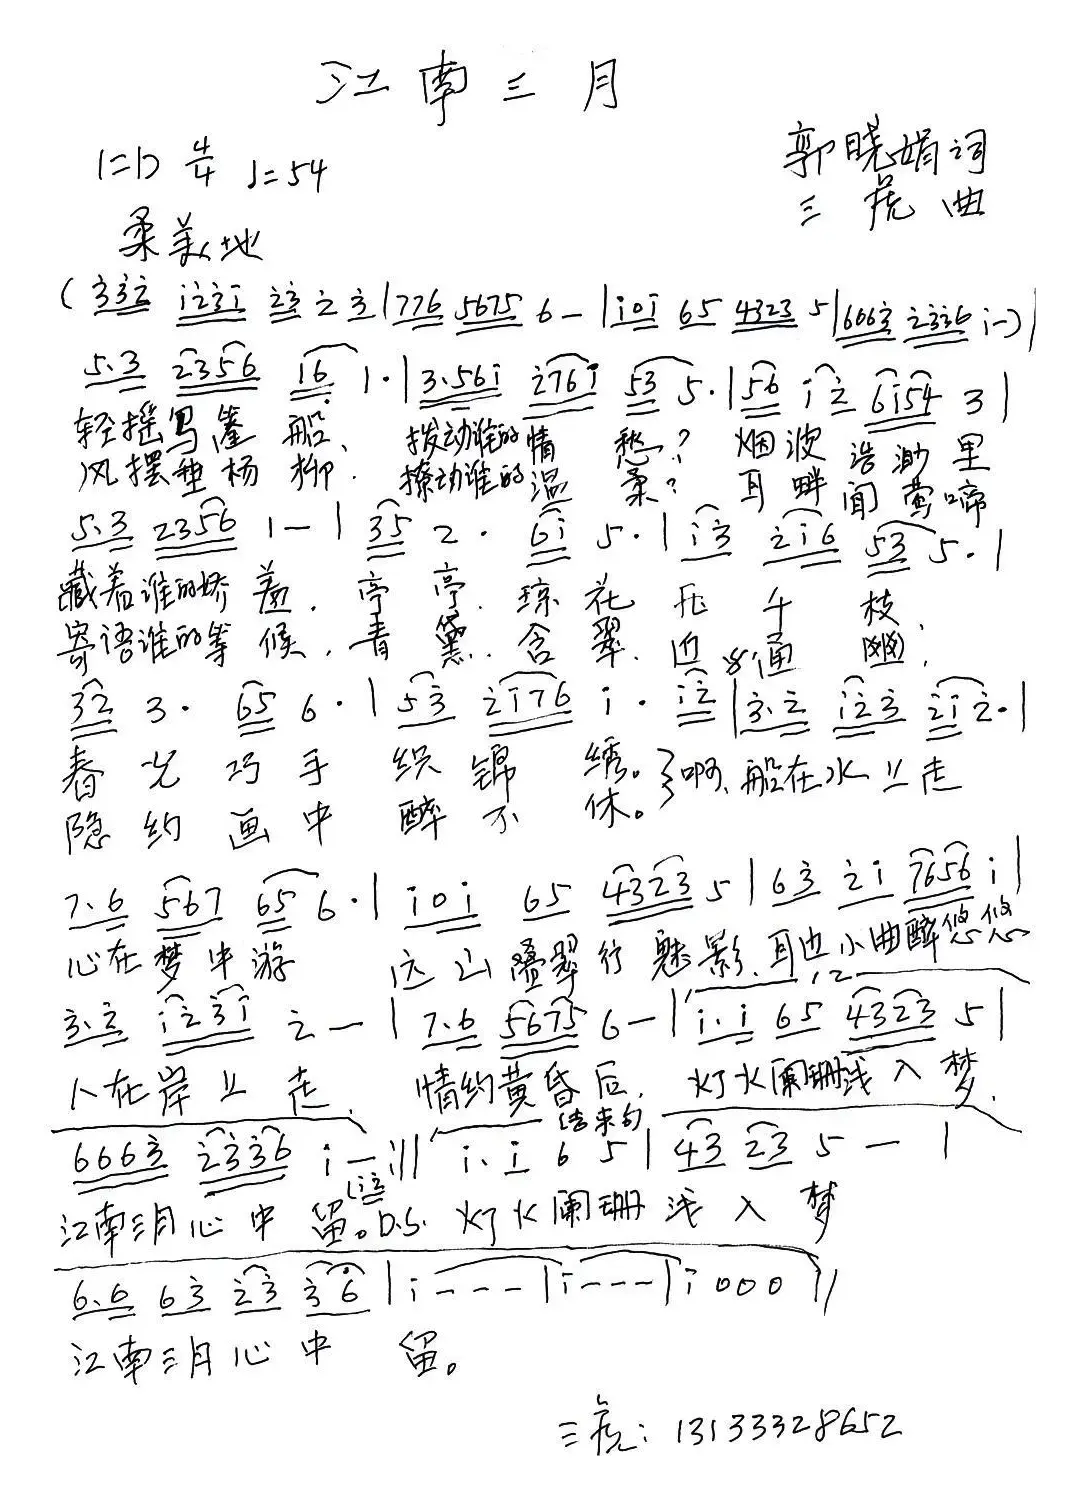 江南三月
1=D 4/4 ♩=54
郭晓娟词
三虎曲
柔美地
(3̇3̇2̇ 1̇2̇3̇1̇ 2̇3̇ 2̇ 3̇|776 5675 6 – |1̇01̇ 65 4323 5|6663̇ 2̇3̇3̇6 1̇–)|
5.3 2356 16 1·|3.561̇ 2̇761̇ 53 5·|56 1̇2̇ 61̇54 3|
轻摇乌篷船、拨动谁的情愁?烟波浩渺里
风摆垂杨柳.撩动谁的温柔?耳畔闻莺啼
5.3 2356 1–|35 2· 61̇ 5·|1̇3̇ 2̇1̇6 53 5·|
藏着谁的娇羞.亭亭.琼花开千枝.
寄语谁的等候.青黛.含翠.通幽.
3̇2̇ 3· 65 6·|53̇ 2̇1̇76 1̇· 1̇2̇|3̇.2̇ 1̇2̇3̇ 2̇1̇2̇·|
春光巧手织锦绣。}啊、船在水上走
隐约画中醉不休。
7.6 567 65 6·|1̇01̇ 65 4323 5|63̇ 2̇1̇ 7656 1̇|
心在梦中游 远山叠翠行魅影.耳边小曲醉悠悠
1,2
3̇.2̇ 1̇2̇3̇1̇ 2̇–|7.6 5675 6–|1̇.1̇ 65 4323 5|
人在岸上走.情约黄昏后.灯火阑珊浅入梦.
结束句
6663̇ 2̇3̇3̇6 1̇–:|| 1̇.1̇ 6 5|43 23 5 – |
(1̇2̇
江南三月心中留。D.S. 灯火阑珊浅入梦
6.6 63̇ 2̇3̇ 3̇6|1̇–––|1̇–––|1̇000‖
江南三月心中留。
三虎:13133328652